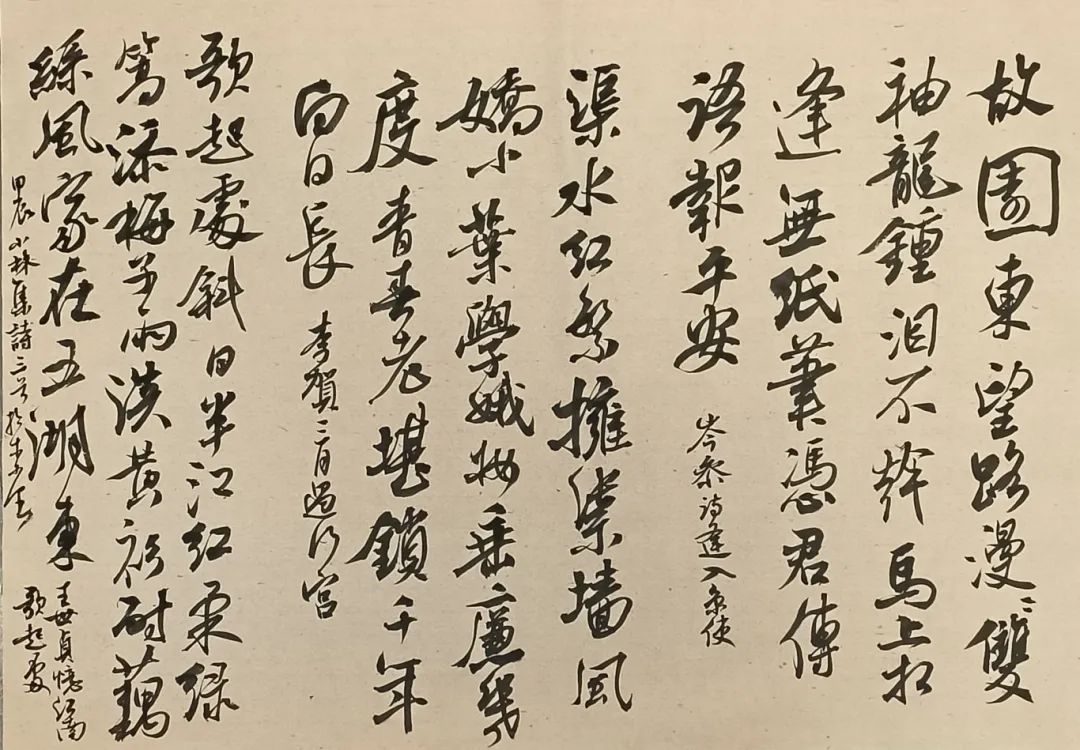 故園東望路漫〻雙
袖龍鍾泪不乾馬上相
逢無紙筆憑君傳
語報平安
岑參詩逢入京使
渠水红繁擁禦墙風
嬌小葉學娥妝垂廉幾
度青春老堪鎖千年
白日長
李賀三月過行宫
歌起處斜日半江红柔绿
篙添梅子雨淡黄衫耐藕
絲風家在五湖東
王世貞憶江南
歌起處
甲辰小林集詩三首於